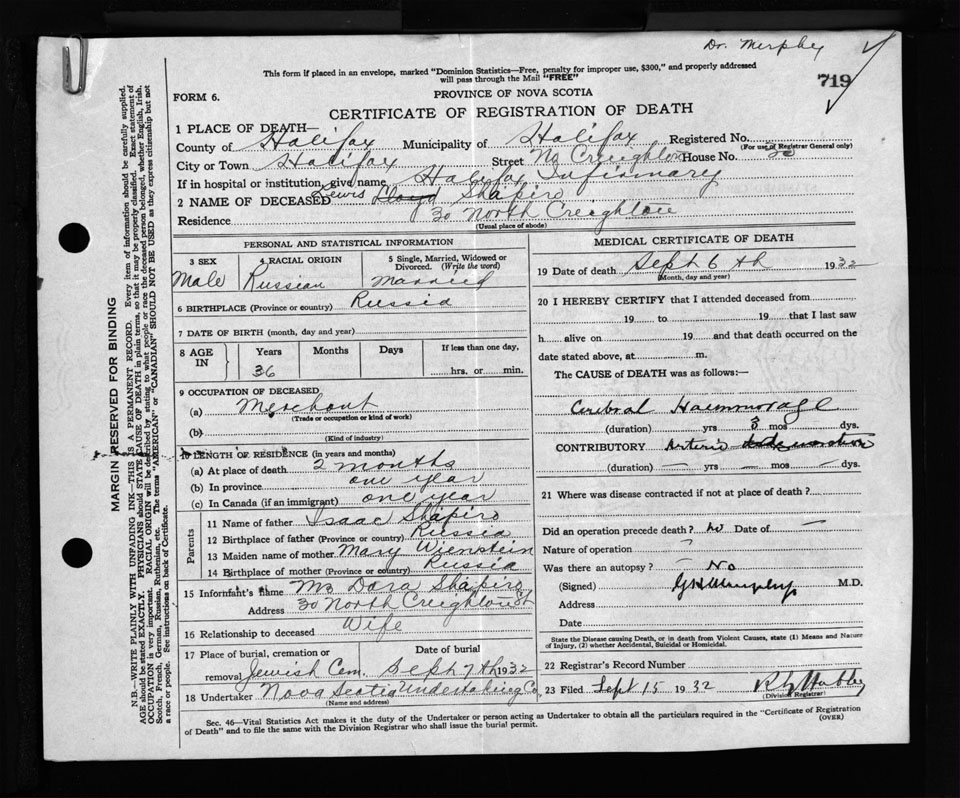 Dr. Murphy
This form if placed in an envelope, marked "Dominion Statistics—Free, penalty for improper use, $300," and properly addressed
will pass through the Mail "FREE"
719
FORM 6.
PROVINCE OF NOVA SCOTIA
CERTIFICATE OF REGISTRATION OF DEATH
1 PLACE OF DEATH—
County of Halifax Municipality of Halifax Registered No.
(For use of Registrar General only)
City or Town Halifax Street No Creighton House No. 30
If in hospital or institution, give name Halifax Infirmary
2 NAME OF DECEASED Lewis Lloyd Shapiro
Residence 30 North Creighton
(Usual place of abode)
PERSONAL AND STATISTICAL INFORMATION
3 SEX 4 RACIAL ORIGIN 5 Single, Married, Widowed or
Divorced. (Write the word)
Male Russian Married
6 BIRTHPLACE (Province or country) Russia
7 DATE OF BIRTH (month, day and year)
8 AGE IN Years Months Days If less than one day,
36 hrs. or min.
9 OCCUPATION OF DECEASED
(a) Merchant
(Trade or occupation or kind of work)
(b)
(Kind of industry)
10 LENGTH OF RESIDENCE (in years and months)
(a) At place of death 2 months
(b) In province one year
(c) In Canada (if an immigrant) one year
Parents
11 Name of father Isaac Shapiro
12 Birthplace of father (Province or country) Russia
13 Maiden name of mother Mary Wienstein
14 Birthplace of mother (Province or country) Russia
15 Informant's name Mrs Dora Shapiro
Address 30 North Creighton St
16 Relationship to deceased Wife
17 Place of burial, cremation or Date of burial
removal Jewish Cem. Sept 7th 1932
18 Undertaker Nova Scotia Undertaking Co.
(Name and address)
MEDICAL CERTIFICATE OF DEATH
19 Date of death Sept 6th 1932
(Month, day and year)
20 I HEREBY CERTIFY that I attended deceased from
19 to 19 that I last saw
h alive on 19 and that death occurred on the
date stated above, at m.
The CAUSE of DEATH was as follows:—
Cerebral Haemmorage
(duration) yrs 3 mos dys.
CONTRIBUTORY Arterio
(duration) — yrs — mos — dys.
21 Where was disease contracted if not at place of death?
Did an operation precede death? No Date of —
Nature of operation
Was there an autopsy? — No
(Signed) G H Murphy M.D.
Address
Date
State the Disease causing Death, or in death from Violent Causes, state (1) Means and Nature
of Injury, (2) whether Accidental, Suicidal or Homicidal.
22 Registrar's Record Number
23 Filed Sept 15 1932
(Division Registrar)
Sec. 46—Vital Statistics Act makes it the duty of the Undertaker or person acting as Undertaker to obtain all the particulars required in the "Certificate of Registration
of Death" and to file the same with the Division Registrar who shall issue the burial permit. (OVER)
MARGIN RESERVED FOR BINDING
N.B.—WRITE PLAINLY WITH UNFADING INK—THIS IS A PERMANENT RECORD. Every item of information should be carefully supplied.
AGE should be stated EXACTLY. PHYSICIANS should STATE CAUSE OF DEATH in plain terms, so that it may be properly classified. Exact statement of
OCCUPATION is very important. RACIAL ORIGIN will be described by stating to what people or race the deceased person belonged, whether English, Irish,
Scotch, French, German, Russian, Ruthenian, etc. The terms "AMERICAN" or "CANADIAN" SHOULD NOT BE USED as they express citizenship but not
a race or people. See instructions on back of Certificate.